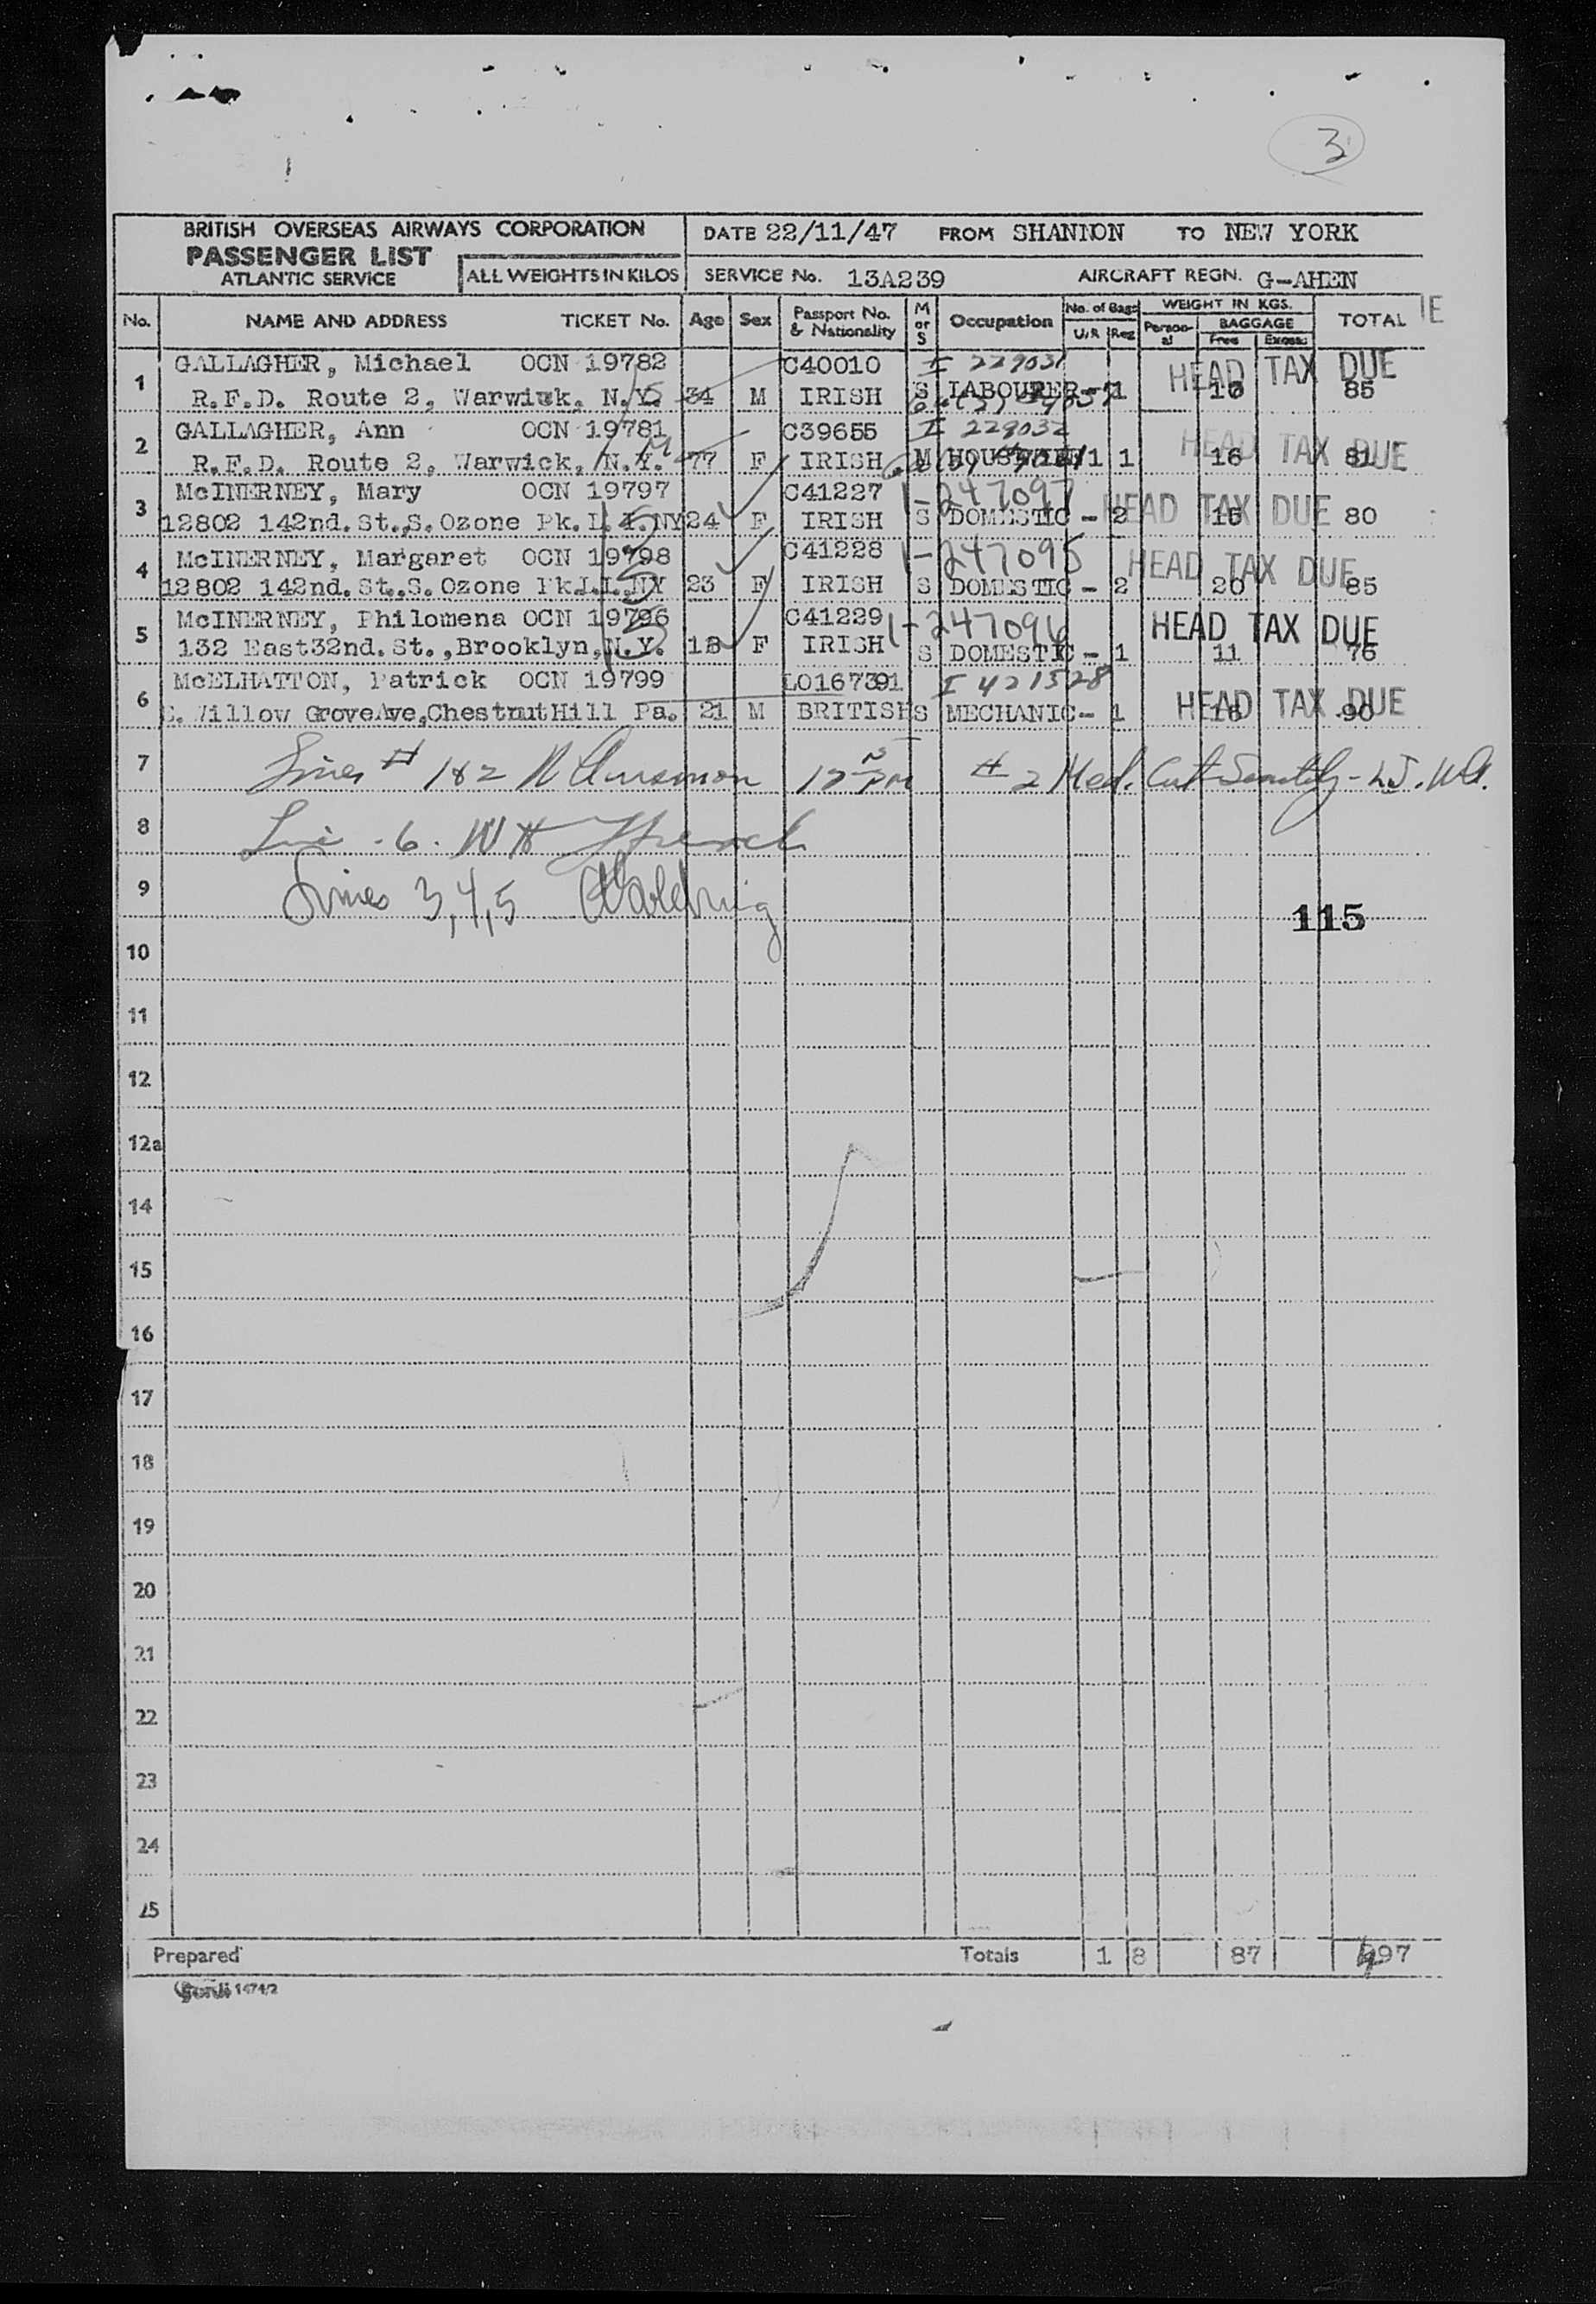 3
BRITISH OVERSEAS AIRWAYS CORPORATION
PASSENGER LIST
ATLANTIC SERVICE
ALL WEIGHTS IN KILOS
DATE 22/11/47 FROM SHANNON TO NEW YORK
SERVICE No. 13A239 AIRCRAFT REGN. G-AHEN
No. NAME AND ADDRESS TICKET No. Age Sex Passport No. & Nationality M or S Occupation No. of Bags U/R Reg WEIGHT IN KGS. Personal BAGGAGE Free Excess TOTAL
1 GALLAGHER, Michael OCN 19782 C40010 I 229031 HEAD TAX DUE
R.F.D. Route 2, Warwick, N.Y. 34 M IRISH S LABOURER - 1 85
2 GALLAGHER, Ann OCN 19781 C39655 I 229032 HEAD TAX DUE
R.F.D. Route 2, Warwick, N.Y. 77 F IRISH M 1 1 16 81
3 McINERNEY, Mary OCN 19797 C41227 1-247097 HEAD TAX DUE
12802 142nd. St.,S. Ozone Pk. L.I.NY 24 F IRISH S DOMESTIC - 2 15 80
4 McINERNEY, Margaret OCN 19798 C41228 1-247095 HEAD TAX DUE
12802 142nd. St.,S. Ozone Pk.L.I.NY 23 F IRISH S DOMESTIC - 2 20 85
5 McINERNEY, Philomena OCN 19796 C41229 1-247096 HEAD TAX DUE
132 East32nd. St.,Brooklyn,N.Y. 18 F IRISH S DOMESTIC - 1 11 76
6 McELHATTON, Patrick OCN 19799 LO167391 I 421528 HEAD TAX DUE
E. Willow GroveAve,ChestnutHill Pa. 21 M BRITISH S MECHANIC - 1 90
7 Lines # 1&2 12 PM # 2 Med. Cert
8 Line - 6. W H
9 Lines 3,4,5
115
10
11
12
12a
14
15
16
17
18
19
20
21
22
23
24
25
Prepared Totals 1 8 87 497